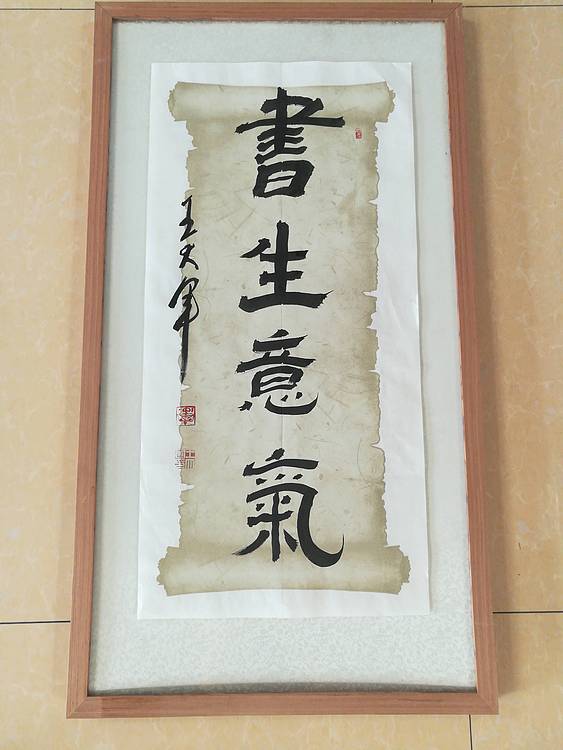 書生意氣
王大軍